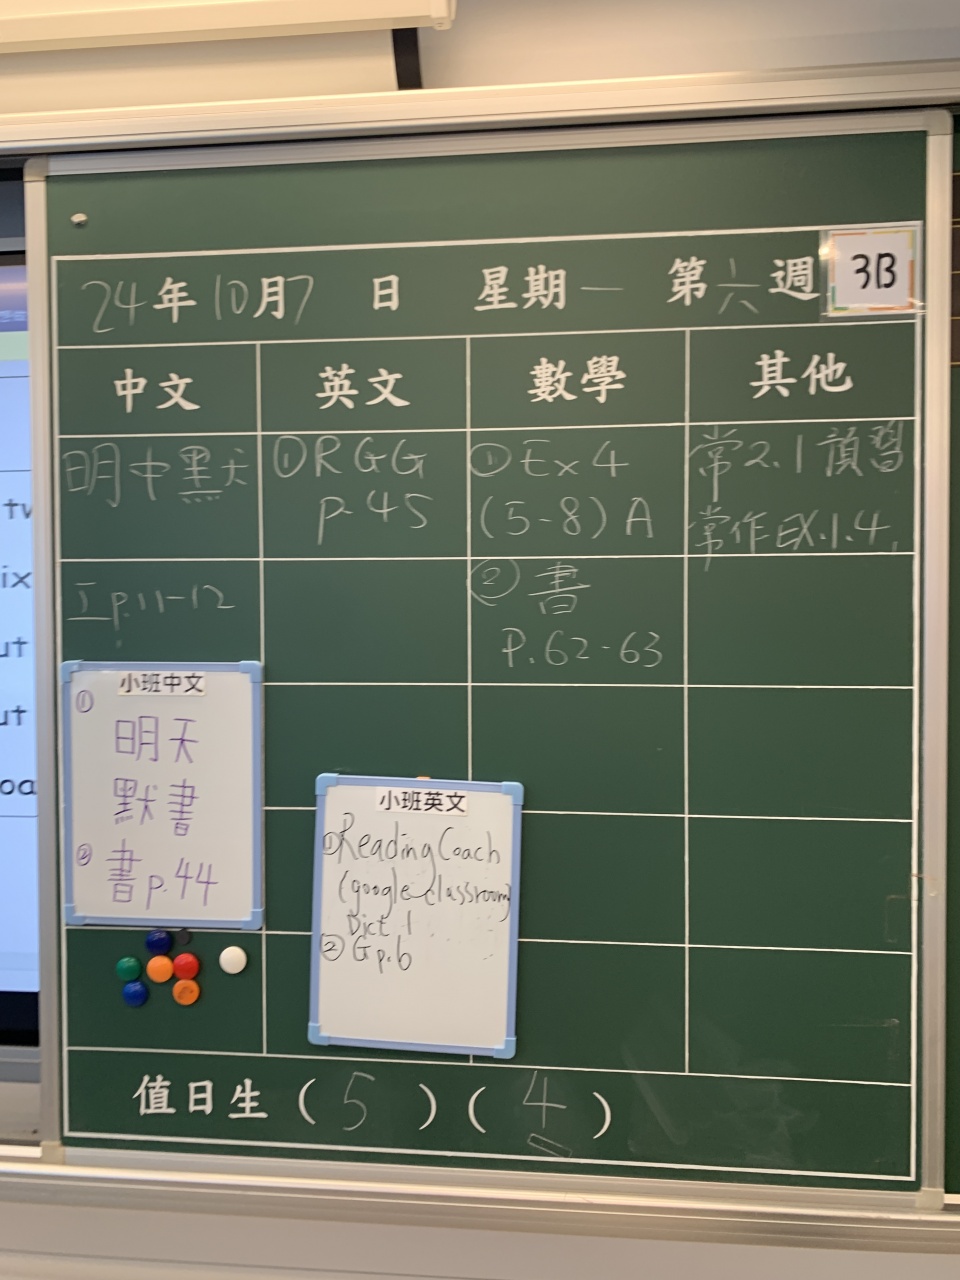 24年10月7日 星期一 第六週 3B
中文 英文 數學 其他
明中默
工p.11-12
①RGG
p.45
①Ex 4
(5-8) A
②書
P.62-63
常2.1預習
常作EX.1.4.
小班中文
①
明天
默書
②書p.44
小班英文
①Reading Coach
(google classroom)
Dict 1
②G p.6
值日生(5)(4)